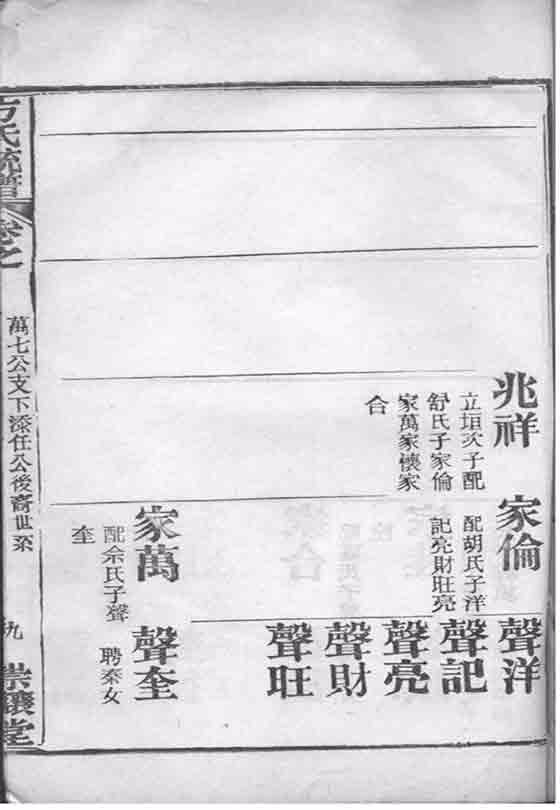 兆祥
立垣次子配
舒氏子家倫
家萬家懷家
合
家倫
配胡氏子洋
記亮財旺亮
聲洋
聲記
聲亮
聲財
聲旺
家萬
配佘氏子聲
奎
聲奎
聘秦女
方氏統譜
卷之
萬七公支下添任公後裔世系
九
堂